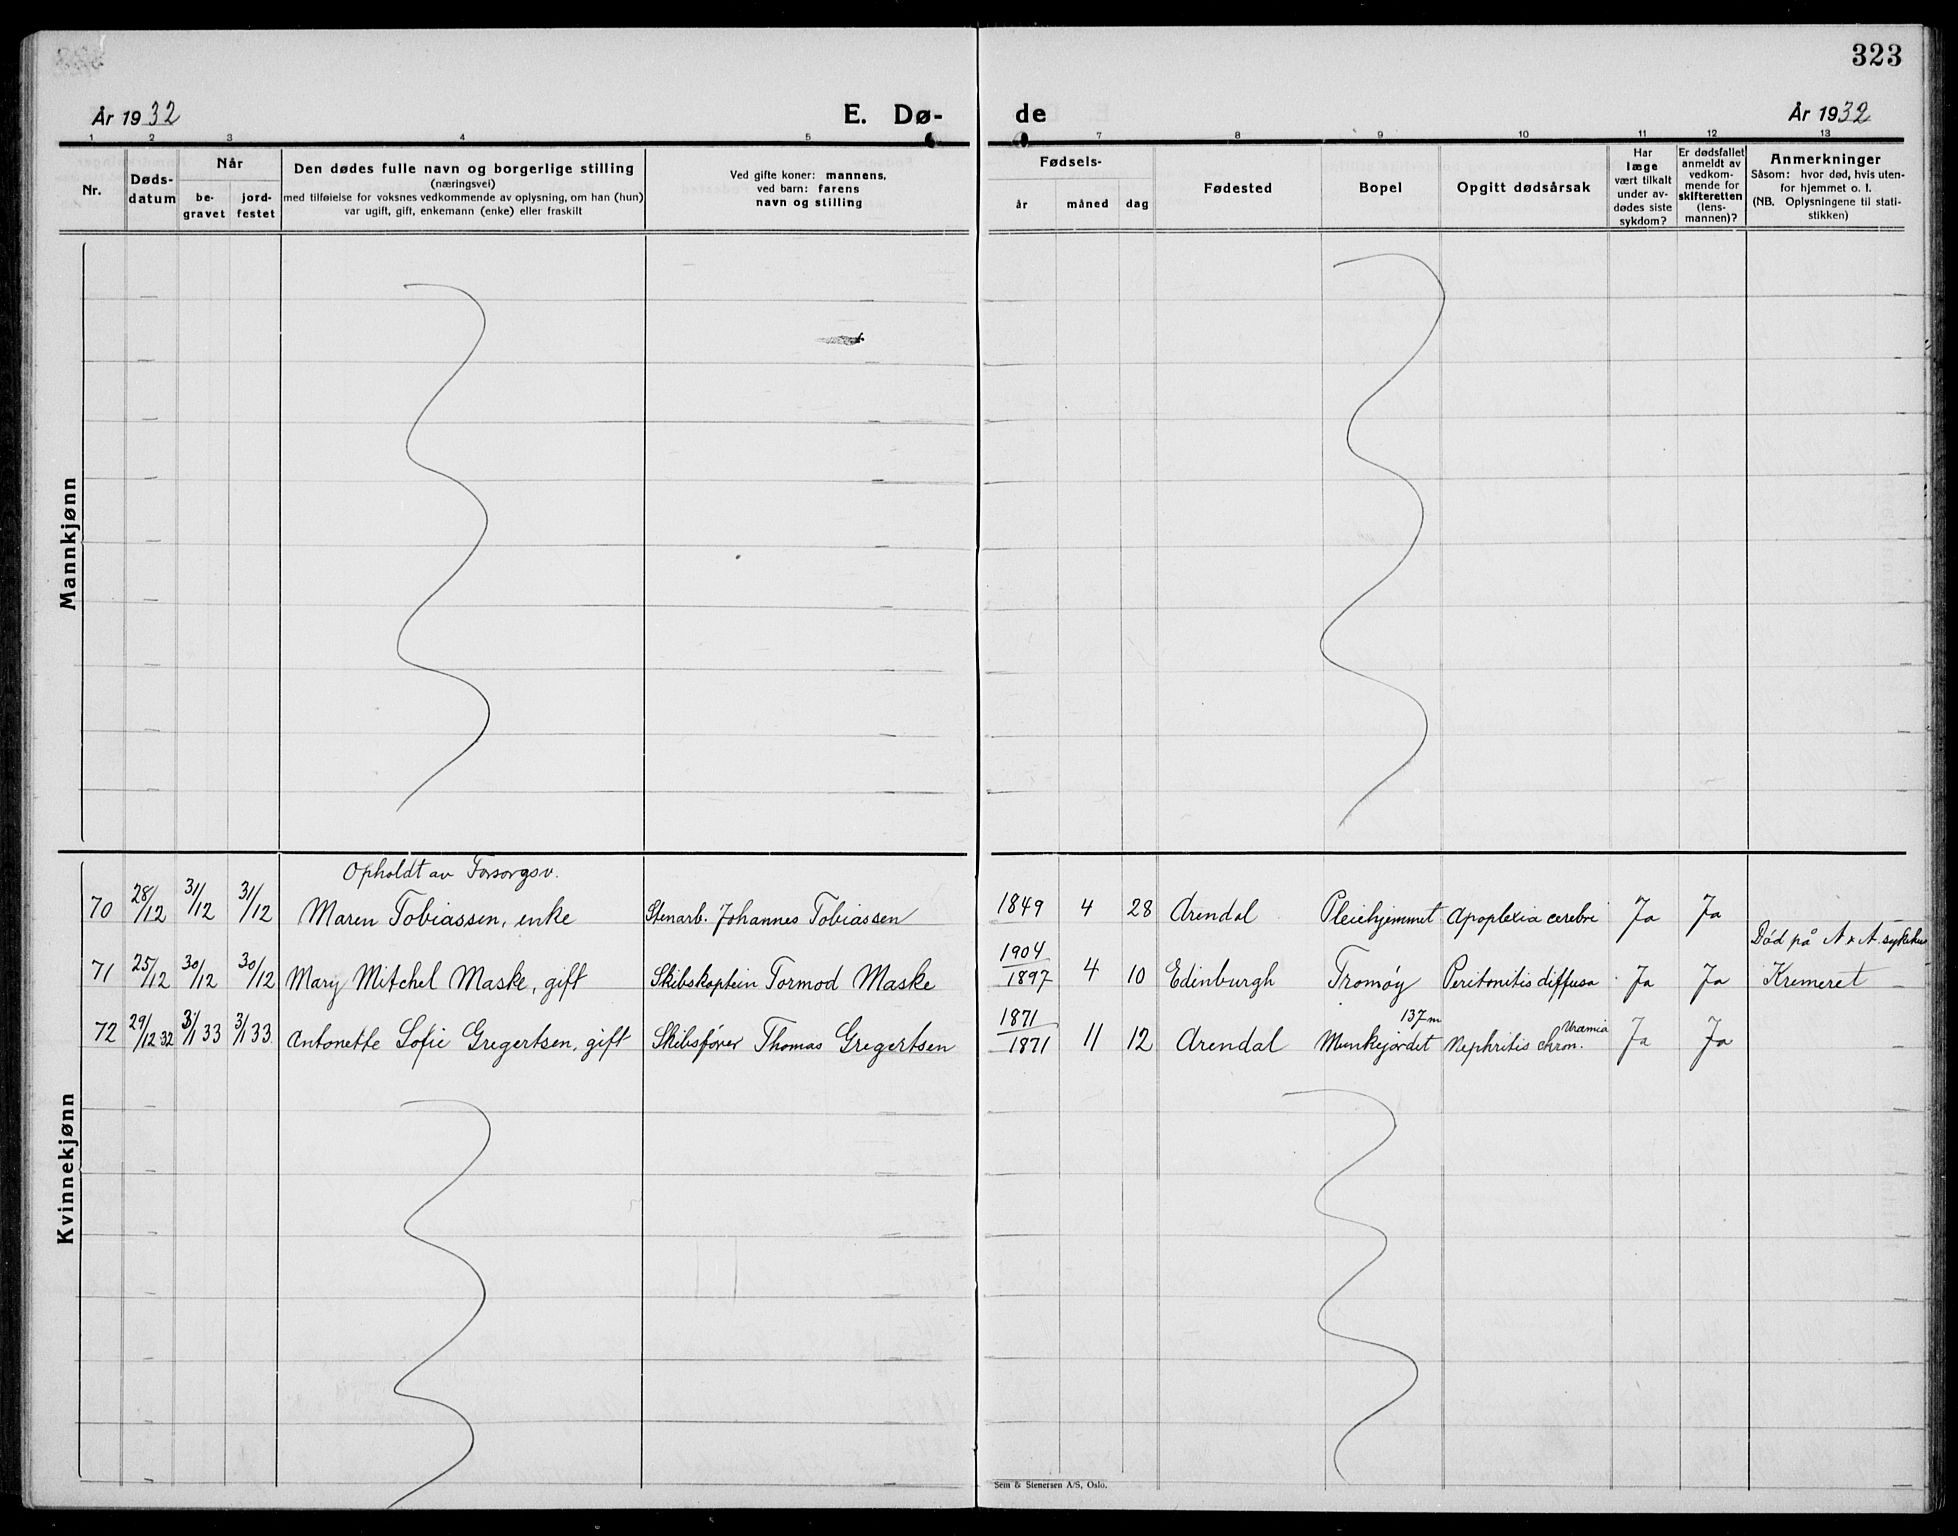 323
År 1932 E. Dø- de År 1932
1 2 3 4 5 7 8 9 10 11 12 13
Nr.
Døds-
datum
Når
be-
gravet
jord-
festet
Den dødes fulle navn og borgerlige stilling
(næringsvei)
med tilføielse for voksnes vedkommende av oplysning, om han (hun)
var ugift, gift, enkemann (enke) eller fraskilt
Ved gifte koner: mannens,
ved barn: farens
navn og stilling
Fødsels-
år måned dag
Fødested
Bopel
Opgitt dødsårsak
Har
læge
vært tilkalt
under av-
dødes siste
sykdom?
Er dødsfallet
anmeldt av
vedkom-
mende for
skifteretten
(lens-
mannen)?
Anmerkninger
Såsom: hvor død, hvis uten-
for hjemmet o. l.
(NB. Oplysningene til stati-
stikken)
Mannkjønn
Kvinnekjønn
Opholdt av Forsorgsv.
70 28/12 31/12 31/12 Maren Tobiassen, enke Stenarb. Johannes Tobiassen 1849 4 28 Arendal Pleiehjemmet Apoplexia cerebri Ja Ja
Død på A. A. sykehus
1904
71 25/12 30/12 30/12 Mary Mitchel Maske, gift Skibskaptein Tormod Maske 1897 4 10 Edinburgh Tromøy Peritonitis diffusa Ja Ja Kremeret
1871 137m Uræmia
72 29/12 32 3/1 33 3/1 33 Antonette Sofie Gregertsen, gift Skibsfører Thomas Gregertsen 1871 11 12 Arendal Munkejordet Nephritis chron. Ja Ja
Sem & Stenersen A/S, Oslo.